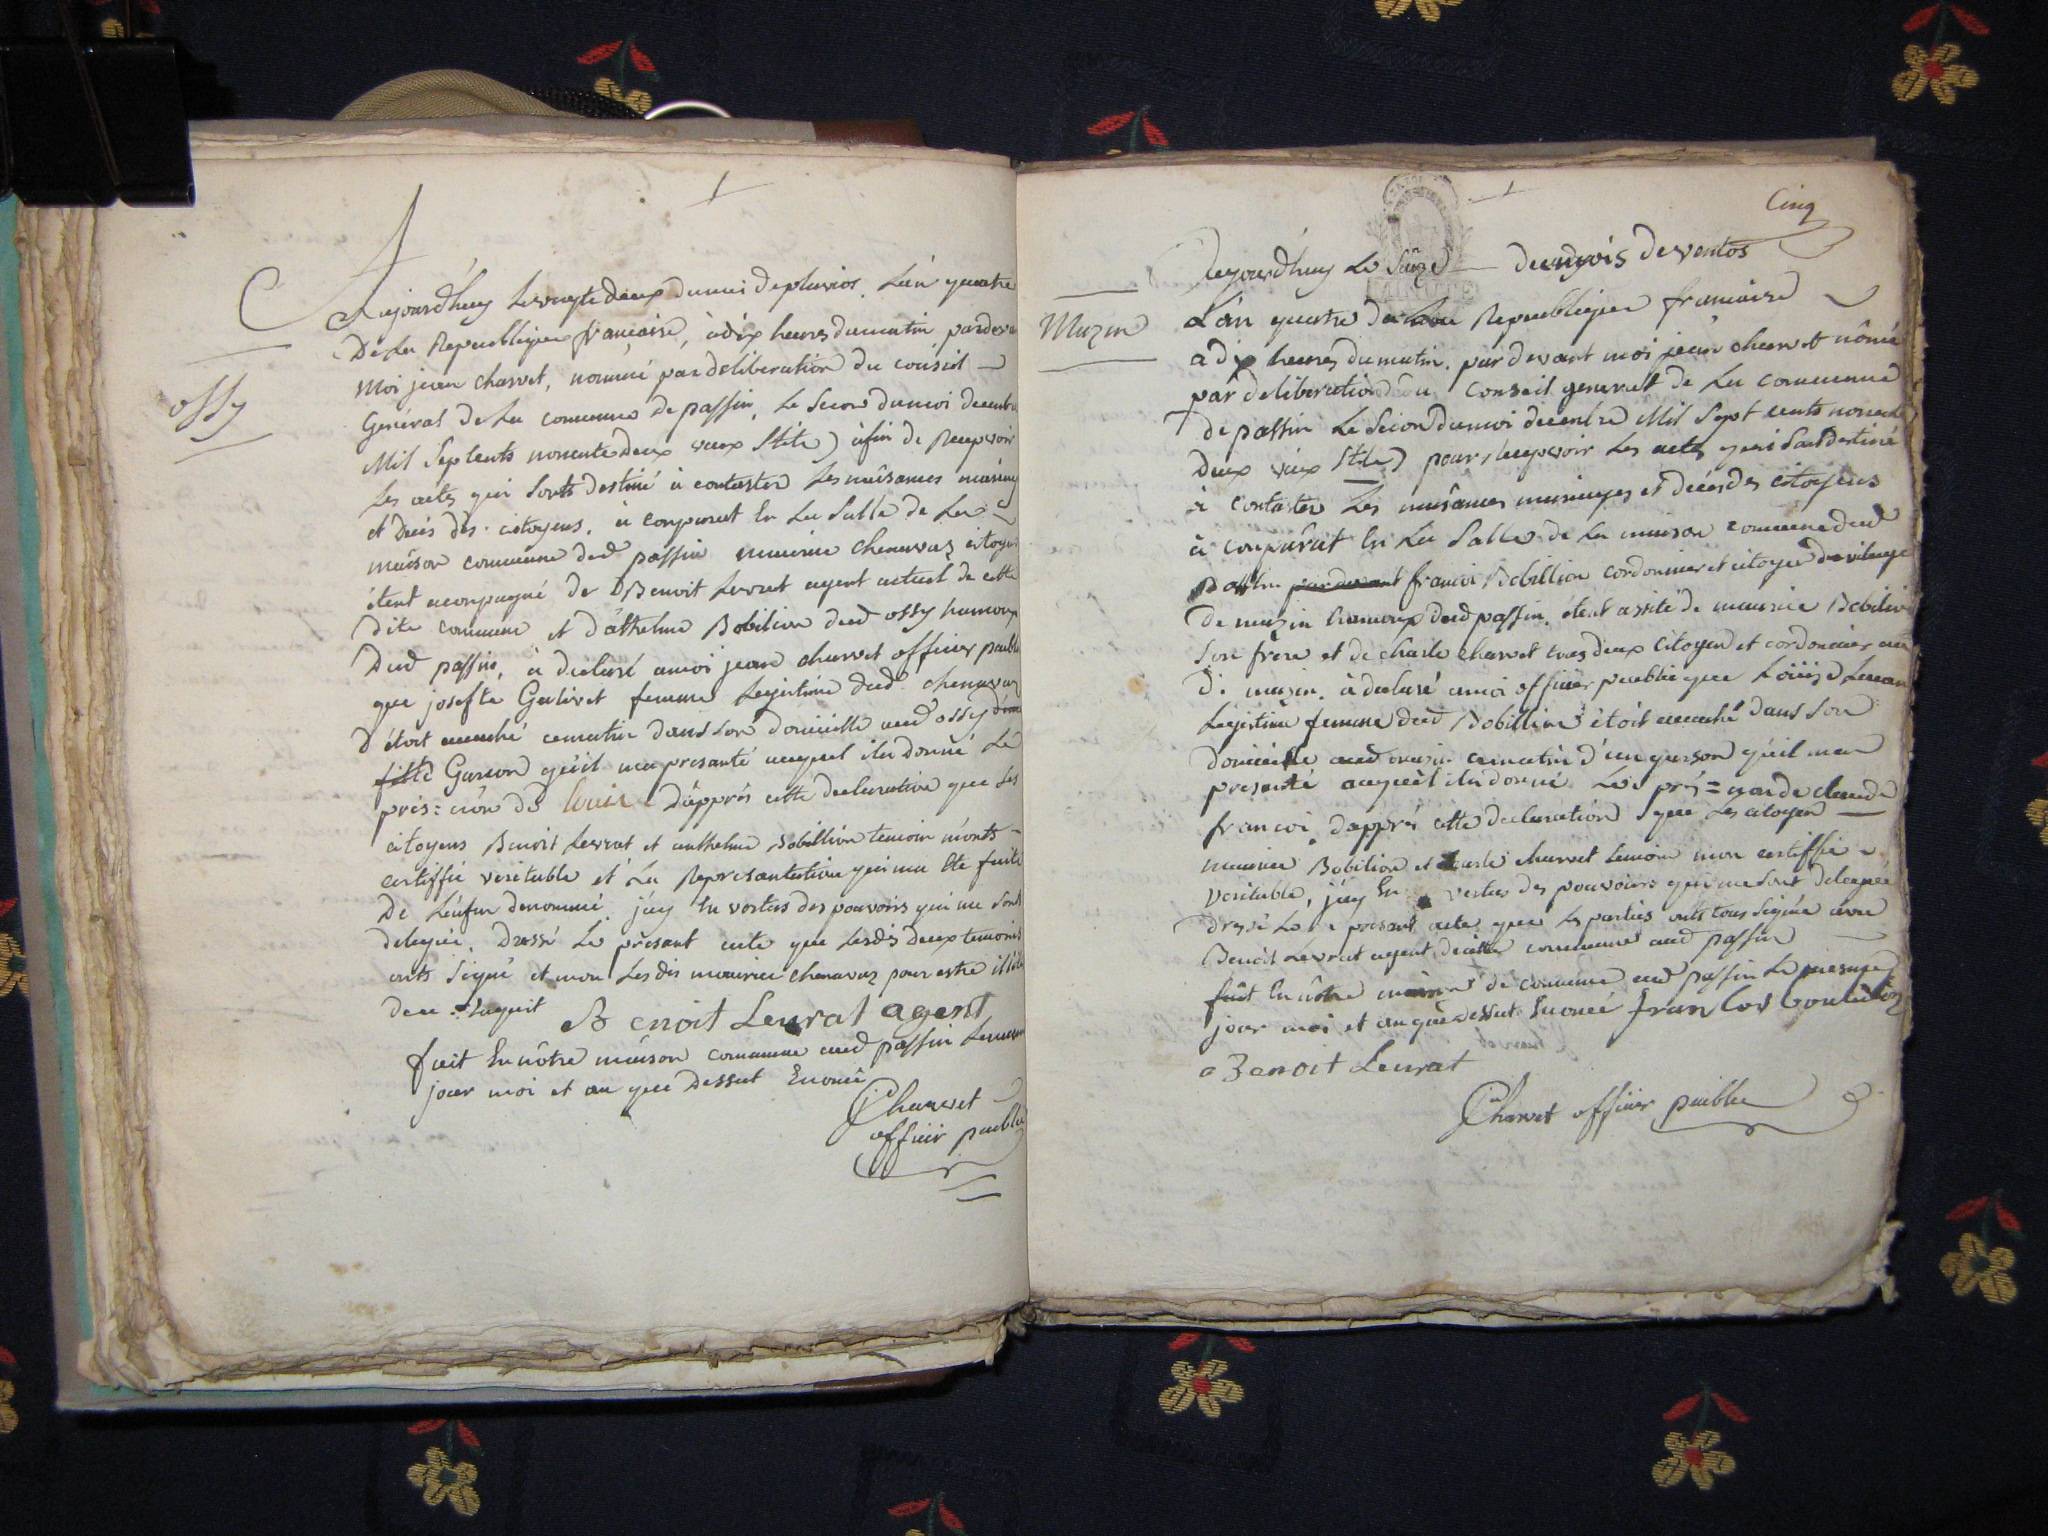 ossy
Aujourdhuy Le vingte deux du moi de pluvios L'an quatre
De La Republique francaise, à dix heures du matin pardeva
Moi jean charvet, nommé par deliberation du conseil
Général de La commune de passin, Le Secon du moi decembre
Mil Septcents nonente deux vieux Stile) àfin de Recepvoir
Les actes qui Sonts destiné à contaster Les naisances mariag
et Decès des citoyens. à comparut En La Salle de La
maison commune dud passin maurice chenavaz citoyen
étant acompagné de Benoit Levrat agent actuel de cette
Dite commune et d'athelme Bobilion dud ossy hameaux
Dud passin, à declaré amoi jean charvet officier public
que josefte Gulivet femme Legistime dud chenavaz
étoit acouché cematin dans Son domicille aud ossy d'une
fille Garson qu'il ma presanté auquel ila donné Le
prés=nón de Louis D'apprés cette declaration que Les
citoyens Benoit Levrat et anthelme Bobillion temoin m'onts
certiffié veritable et La Representation qui ma Eté faite
De L'enfan denommé j'ay En vertus des pouvoirs qui me Sont
delegué, Dressé Le présant acte que Lesdis deux temoins
onts Signé et mon Lesdis maurice chenavaz pour estre illitéré
de ce Enquit
Benoit Levrat agent
fait En nôtre maison commune aud passin Le meme
jour moi et an que Dessut Enoncé
Charvet
officir public
Cinq
Muzin
Aujourdhuy Le Seize du mois de ventos
L'an quatre de La Republique francaise
a dix heures du matin. par devant moi jean charvet nômé
par deliberation du Conseil general de La commune
de passin Le Secon du moi decembre Mil Sept cents nonente
deux vieux Stile) pour Recepvoir Les actes qui Sont destiné
à contaster Les naisances mariages et decés des citoyens
à comparut En La Salle de La maison commune dud
passin pardevant francoi Bobillion cordonnier et citoyen du vilage
De muzin hameaux dud passin. étant assité de maurice Bobilion
Son frère et de charle charvet tous deux Citoyen et cordonnier au
di muzin. à declaré amoi officier public que Louise
Legistime femme dud Bobillion étoit acouché dans Son
domicille aud muzin cematin d'un garson qu'il ma
presanté auquel ila donné Le prés=non de claude
francoi d'apprés cette declaration que Les citoyen
maurice Bobilion et charle charvet temoin mon certiffié
veritable, j'ay En vertus des pouvoirs qui me Sont delegué
dressé Le present acte que Les parties onts tous Signée avec
Benoit Levrat agent de cette commune aud passin
fait En nôtre maison de commune aud passin Le mesme
jour moi et an que dessut Enoncé
Benoit Levrat
Charvet officier public